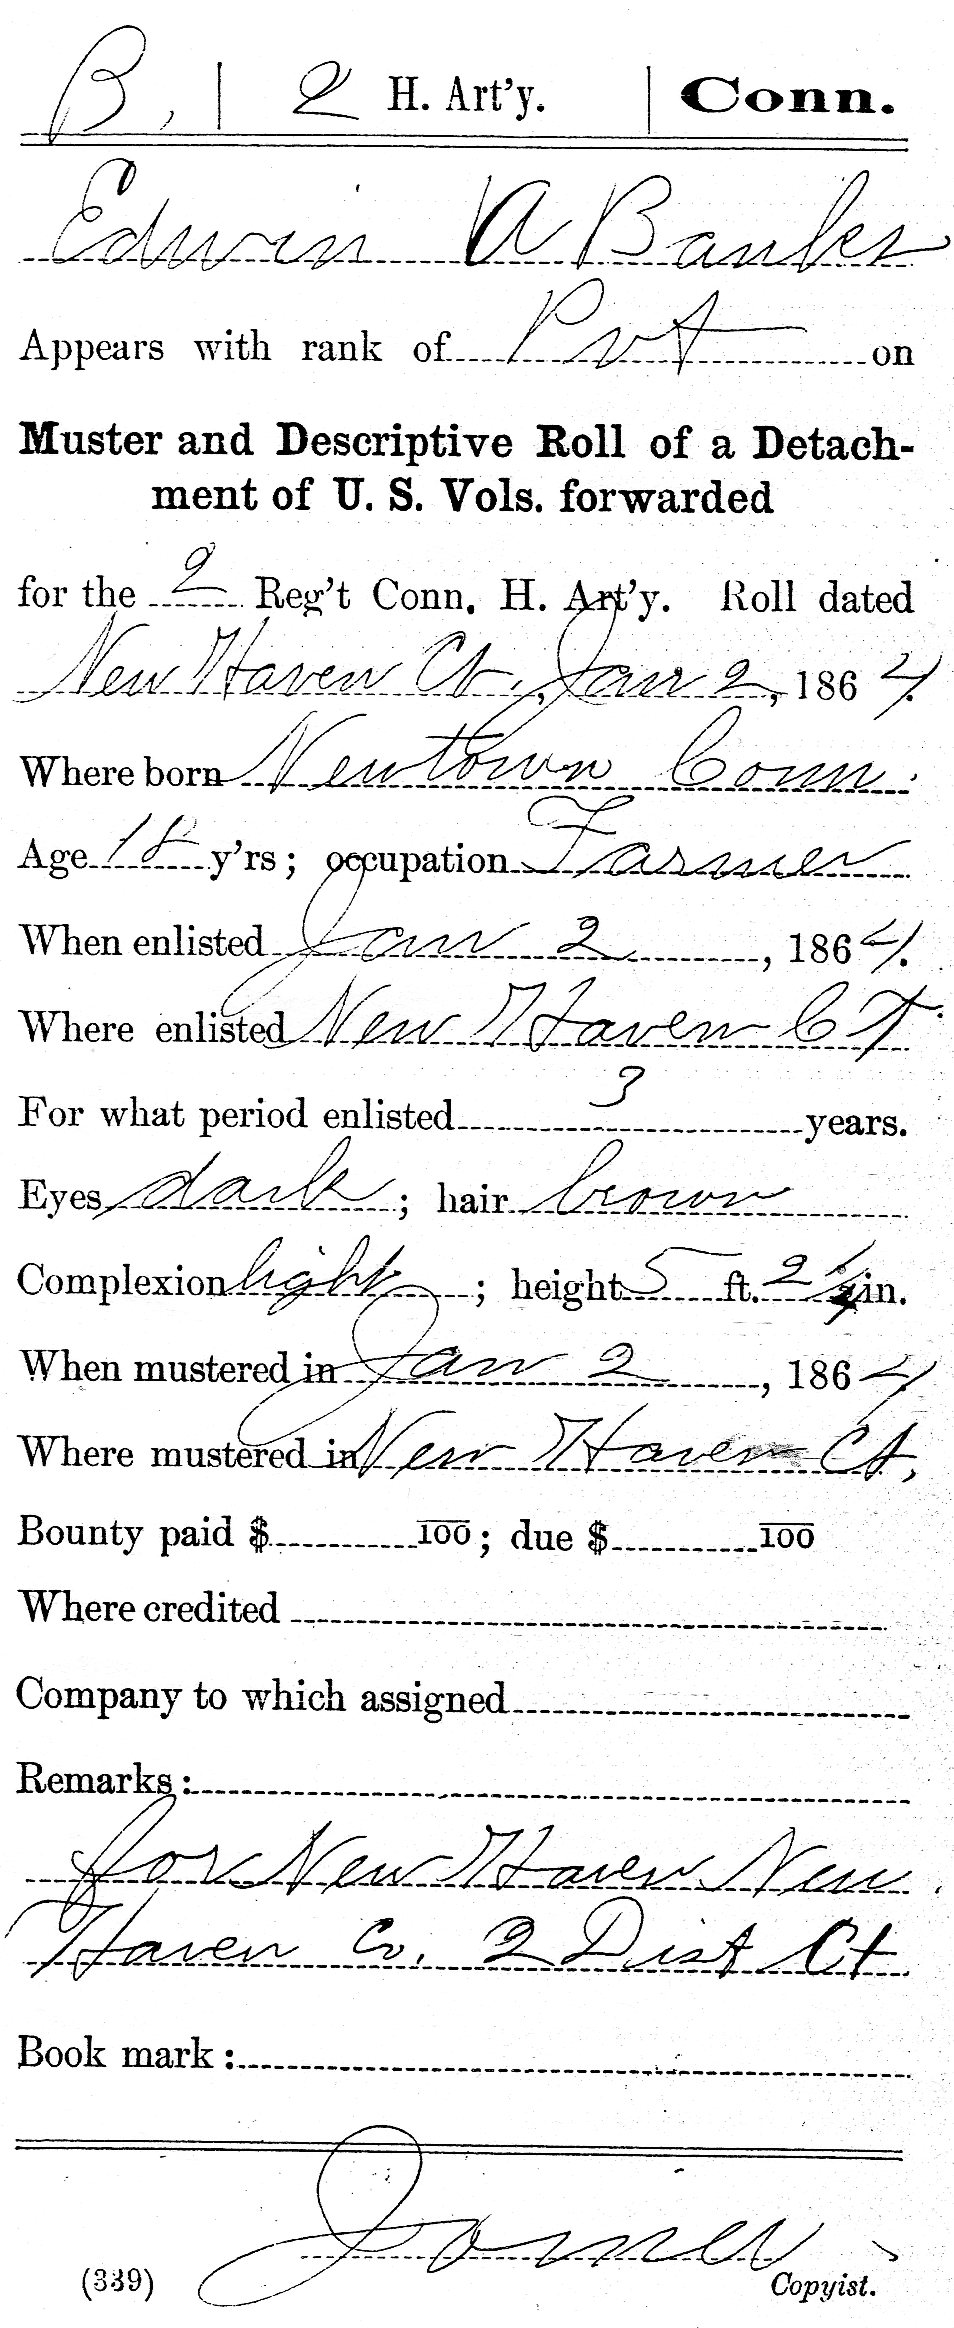 B, | 2 H. Art'y. | Conn.
Edwin A Banks
Appears with rank of Pvt on
Muster and Descriptive Roll of a Detach-
ment of U. S. Vols. forwarded
for the 2 Reg't Conn. H. Art'y. Roll dated
New Haven Ct., Jan 2, 1864.
Where born Newtown Conn.
Age 18 y'rs; occupation Farmer
When enlisted Jan 2, 1864.
Where enlisted New Haven CT.
For what period enlisted 3 years.
Eyes dark; hair brown
Complexion light; height 5 ft. 2 in.
When mustered in Jan 2, 1864.
Where mustered in New Haven Ct,
Bounty paid $ 100; due $ 100
Where credited
Company to which assigned
Remarks:
for New Haven New
Haven Co. 2 Dist Ct
Book mark:
(339) Copyist.